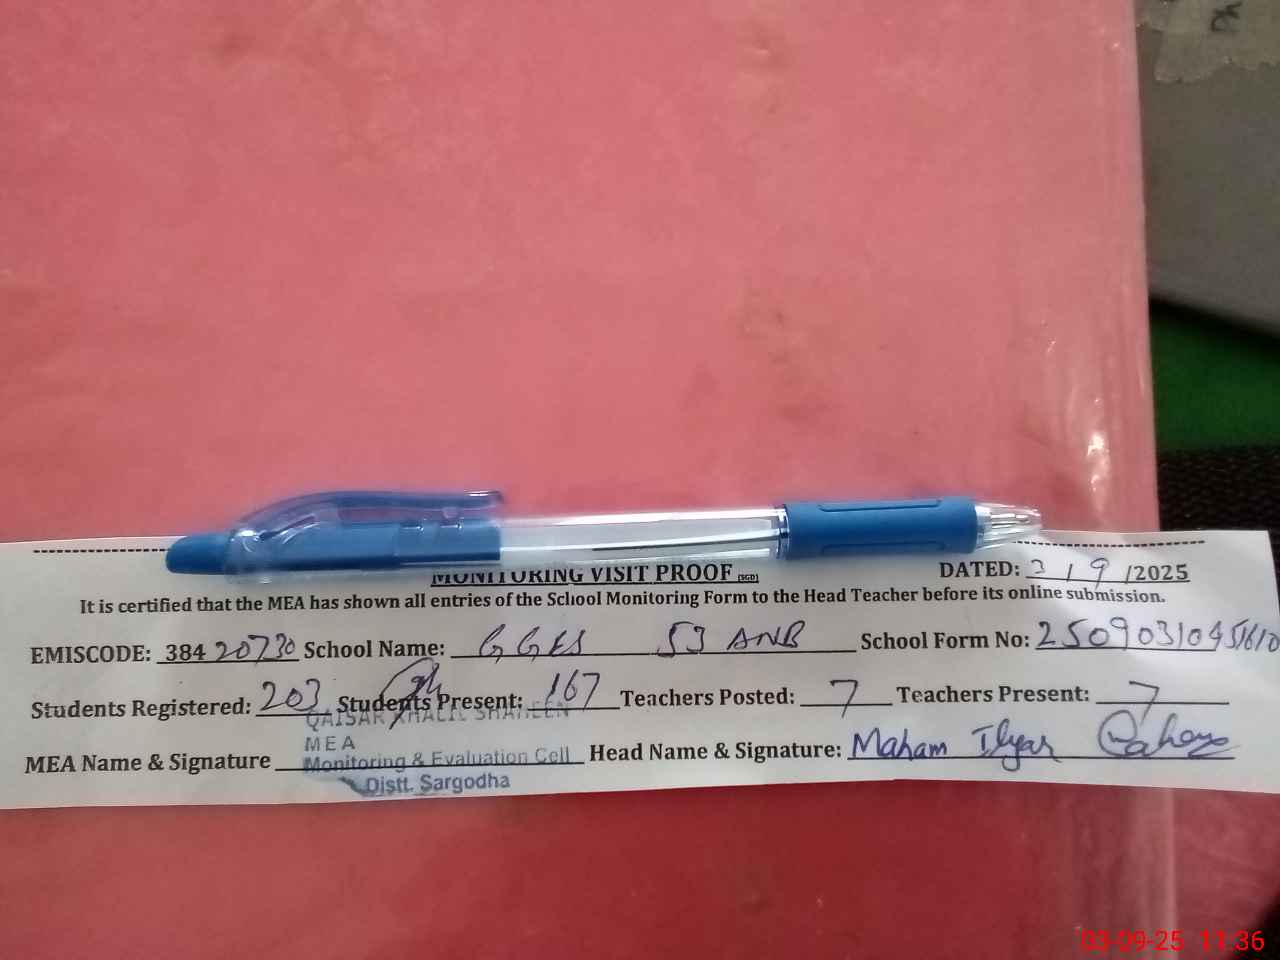 MONITORING VISIT PROOF (SGD)
DATED: 3/9/2025
It is certified that the MEA has shown all entries of the School Monitoring Form to the Head Teacher before its online submission.
EMISCODE: 384 20730 School Name: GGES 53 ANB School Form No:
Students Registered: 203 Students Present: 167 Teachers Posted: 7 Teachers Present: 7
QAISAR KHALIL SHAHEEN
MEA
MEA Name & Signature Monitoring & Evaluation Cell Head Name & Signature: Maham Ilyas
Distt. Sargodha
03-09-25 11:36